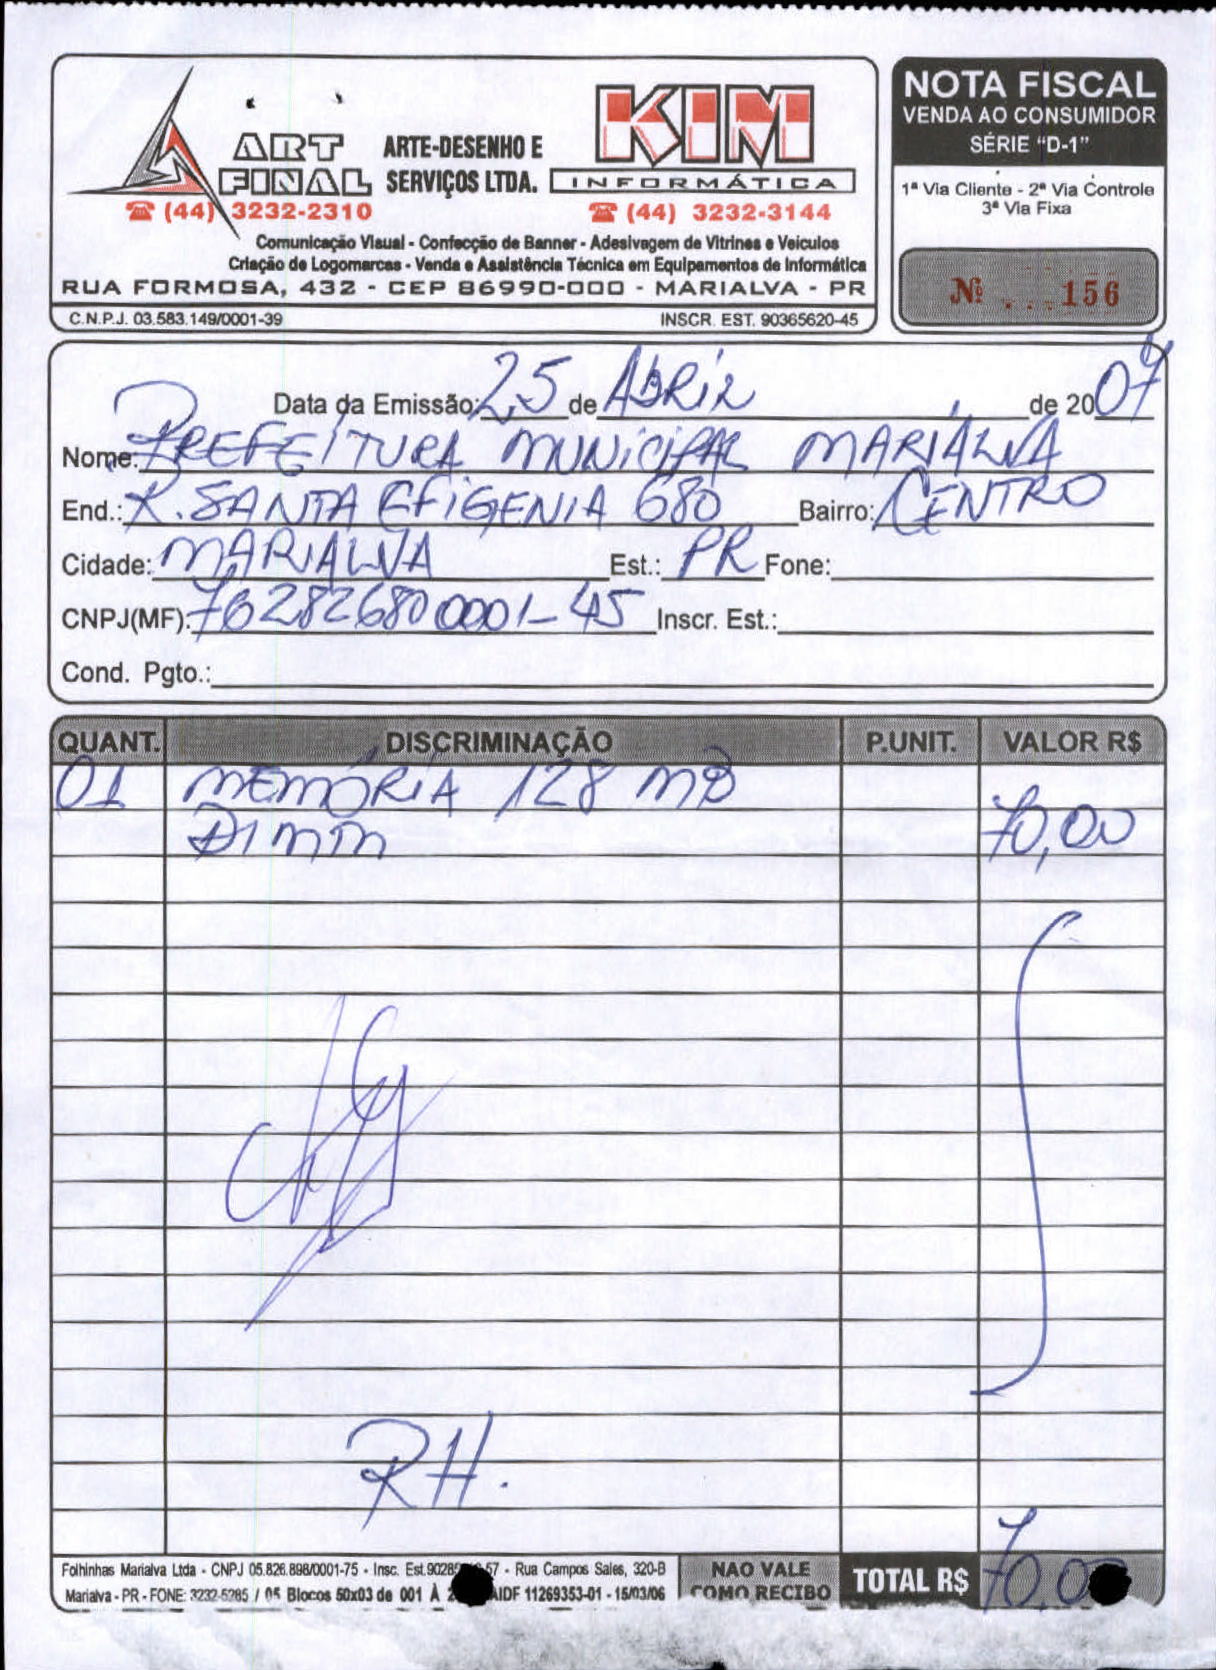 ART FINAL
ARTE-DESENHO E SERVIÇOS LTDA.
KIM INFORMÁTICA
(44) 3232-2310
(44) 3232-3144
Comunicação Visual - Confecção de Banner - Adesivagem de Vitrines e Veículos
Criação de Logomarcas - Venda e Assistência Técnica em Equipamentos de Informática
RUA FORMOSA, 432 - CEP 86990-000 - MARIALVA - PR
C.N.P.J. 03.583.149/0001-39 INSCR. EST. 90365620-45
NOTA FISCAL
VENDA AO CONSUMIDOR
SÉRIE "D-1"
1ª Via Cliente - 2ª Via Controle
3ª Via Fixa
Nº 156
Data da Emissão: 25 de ABRIL de 2007
Nome: PREFEITURA MUNICIPAL MARIALVA
End.: R. SANTA EFIGENIA 680 Bairro: CENTRO
Cidade: MARIALVA Est.: PR Fone:
CNPJ(MF): 762826800001-45 Inscr. Est.:
Cond. Pgto.:
QUANT. DISCRIMINAÇÃO P.UNIT. VALOR R$
01 MEMÓRIA 128 MB
DIMM 70,00
RH.
Folhinhas Marialva Ltda - CNPJ 05.826.898/0001-75 - Insc. Est. - Rua Campos Sales, 320-B
Marialva - PR - FONE: 3232-5285 / 05 Blocos 50x03 de 001 À AIDF 11269353-01 - 15/03/06
NAO VALE
COMO RECIBO
TOTAL R$ 70,0